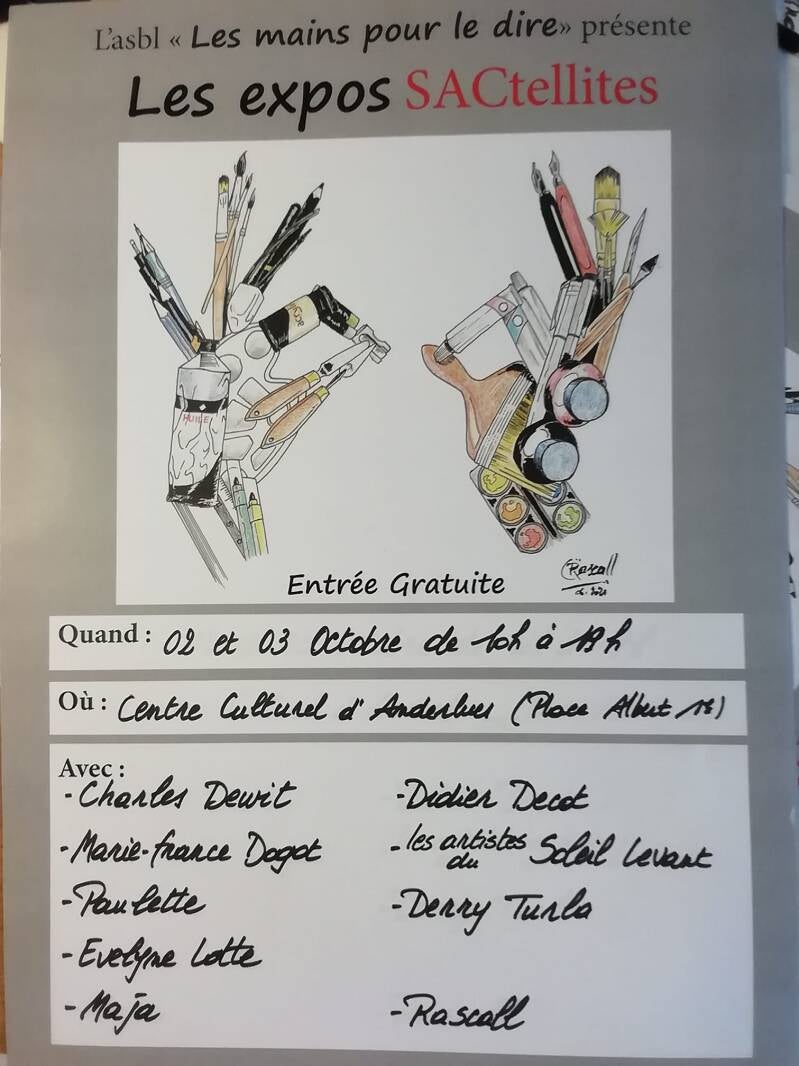 L'asbl « Les mains pour le dire» présente
Les expos SACtellites
HUILE
Entrée Gratuite
Rascall
Quand : 02 et 03 Octobre de 10h à 19h
Où : Centre Culturel d' Anderlues (Place Albert 1er)
Avec :
- Charles Dewit
- Didier Decot
- Marie-france Dogot
- les artistes du Soleil Levant
- Paulette
- Derry Turla
- Evelyne Lotte
- Maja
- Rascall